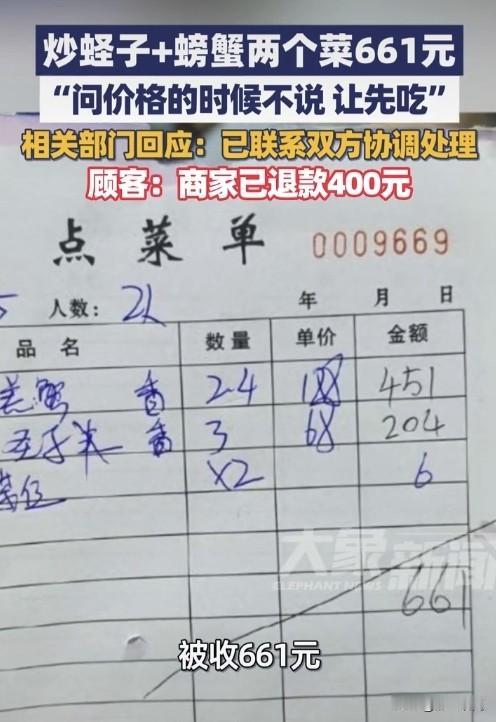 炒蛏子+螃蟹两个菜661元
“问价格的时候不说 让先吃”
相关部门回应：已联系双方协调处理
顾客：商家已退款400元
点菜单 0009669
人数：2人 年 月 日
品名 数量 单价 金额
蟹 香 2.4 188 451
香 3 68 204
X2 6
大象新闻
ELEPHANT NEWS
661
被收661元